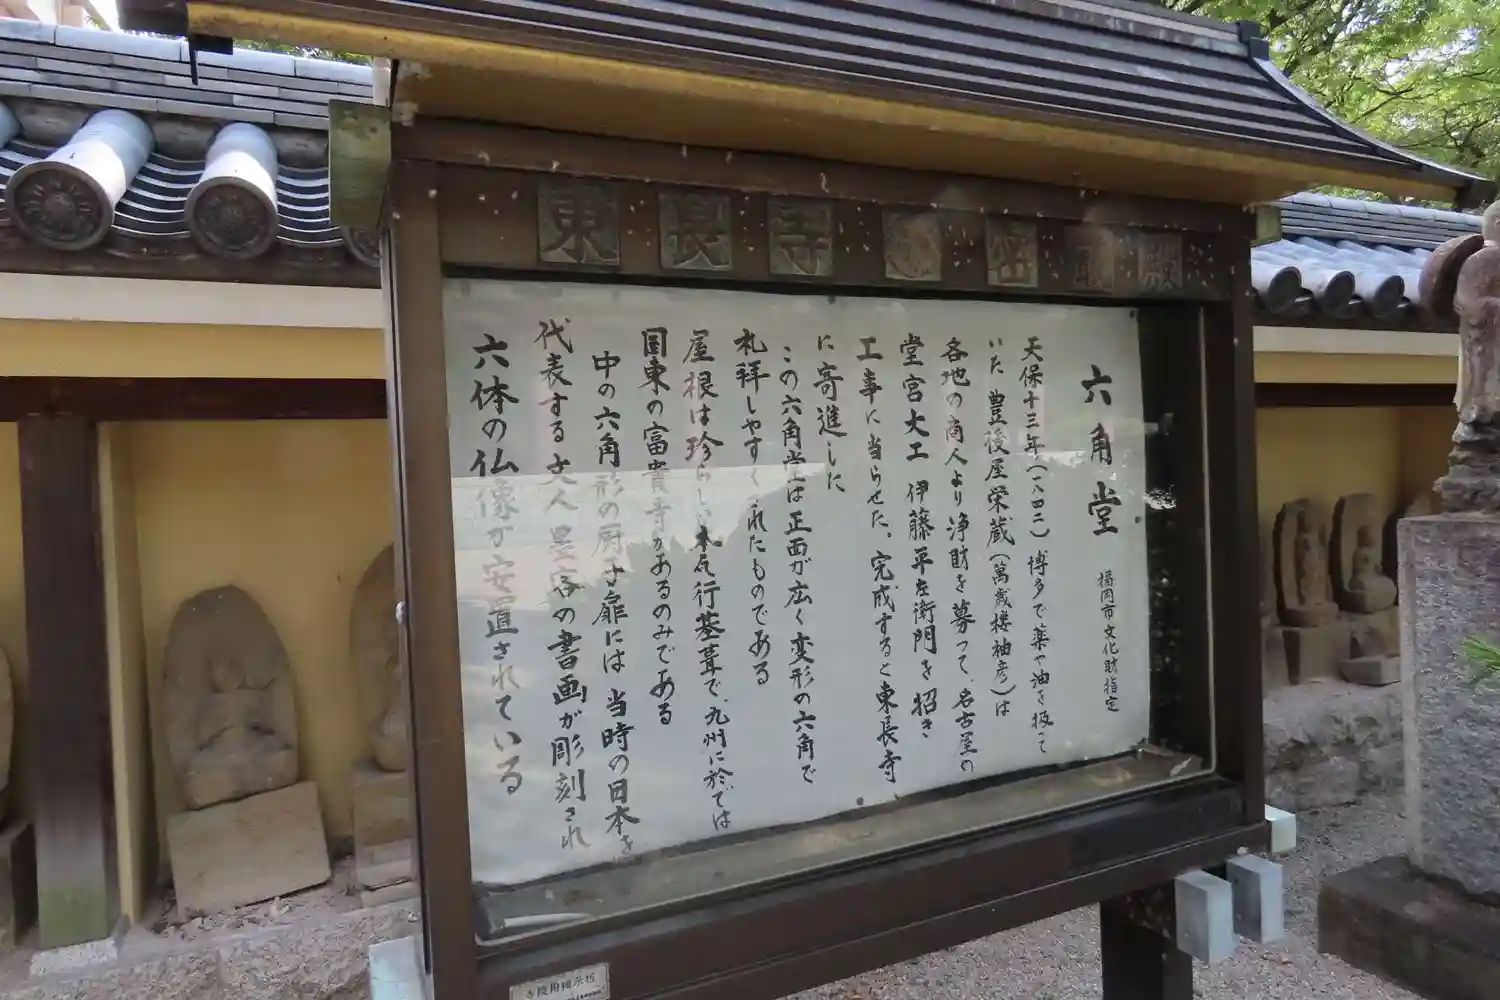 東長寺
六角堂 福岡市文化財指定
天保十三年(一八四二)博多で薬や油を扱って
いた 豊後屋栄蔵(萬歳樓袖彦)は
各地の商人より浄財を募って、名古屋の
堂宮大工 伊藤平左衛門を招き
工事に当らせた。完成すると東長寺
に寄進した
この六角堂は正面が広く変形の六角で
礼拝しやすくされたものである
屋根は珍らしい本瓦行基葺で、九州に於ては
国東の富貴寺があるのみである
中の六角形の厨子扉には当時の日本を
代表する文人墨客の書画が彫刻され
六体の仏像が安置されている